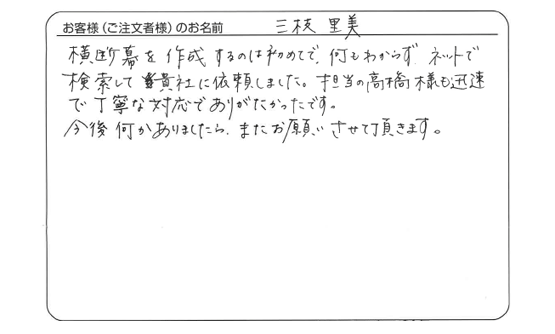 お客様（ご注文者様）のお名前 三枝 里美
横断幕を作成するのは初めてで、何もわからず、ネットで
検索して貴社に依頼しました。担当の高橋様も迅速
で丁寧な対応でありがたかったです。
今後何かありましたら、またお願いさせて頂きます。